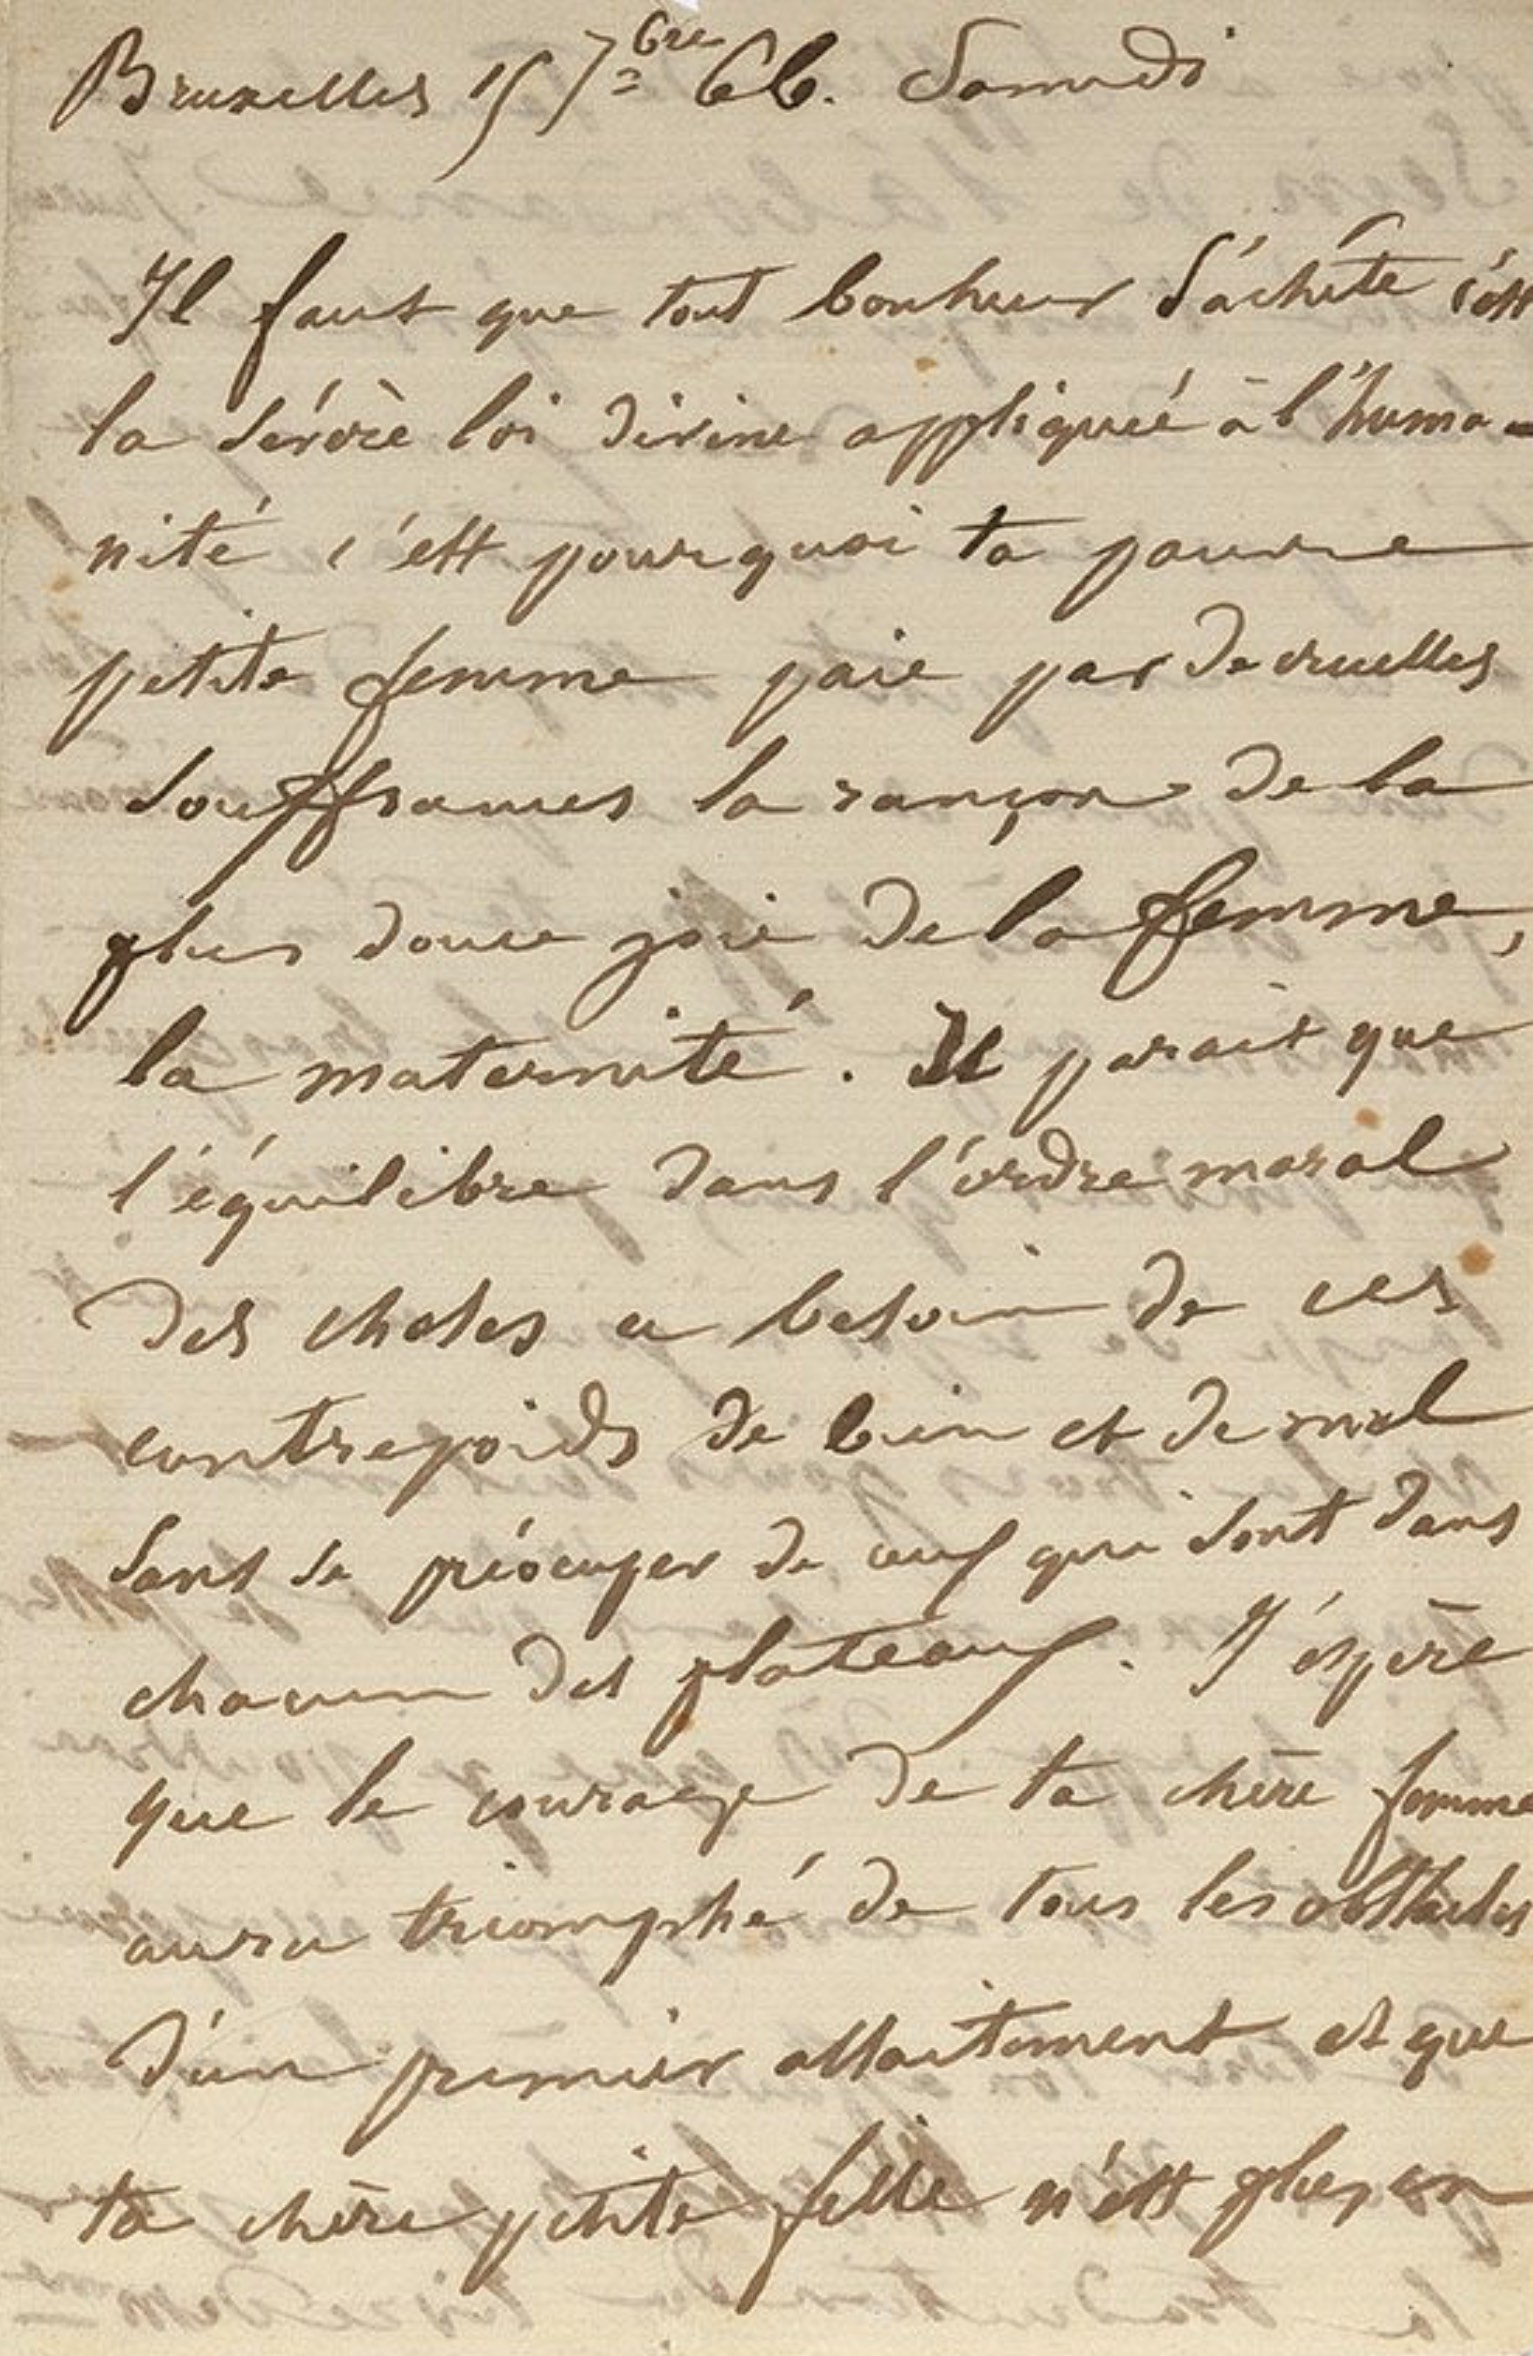 Bruxelles 15 7bre 66. Samedi
Il faut que tout bonheur s'achète c'est
la sévère loi divine appliquée à l'huma-
nité c'est pourquoi ta pauvre
petite femme paie par de cruelles
souffrances la rançon de la
plus douce joie de la femme,
la maternité. Il parait que
l'équilibre dans l'ordre moral
des choses a besoin de ces
contrepoids de bien et de mal
sans se préocuper de ceux qui sont dans
chacun des plateaux. J'espère
que le courage de ta chère femme
aura triomphé de tous les obstacles
d'un premier allaitement et que
ta chère petite fille n'est plus en